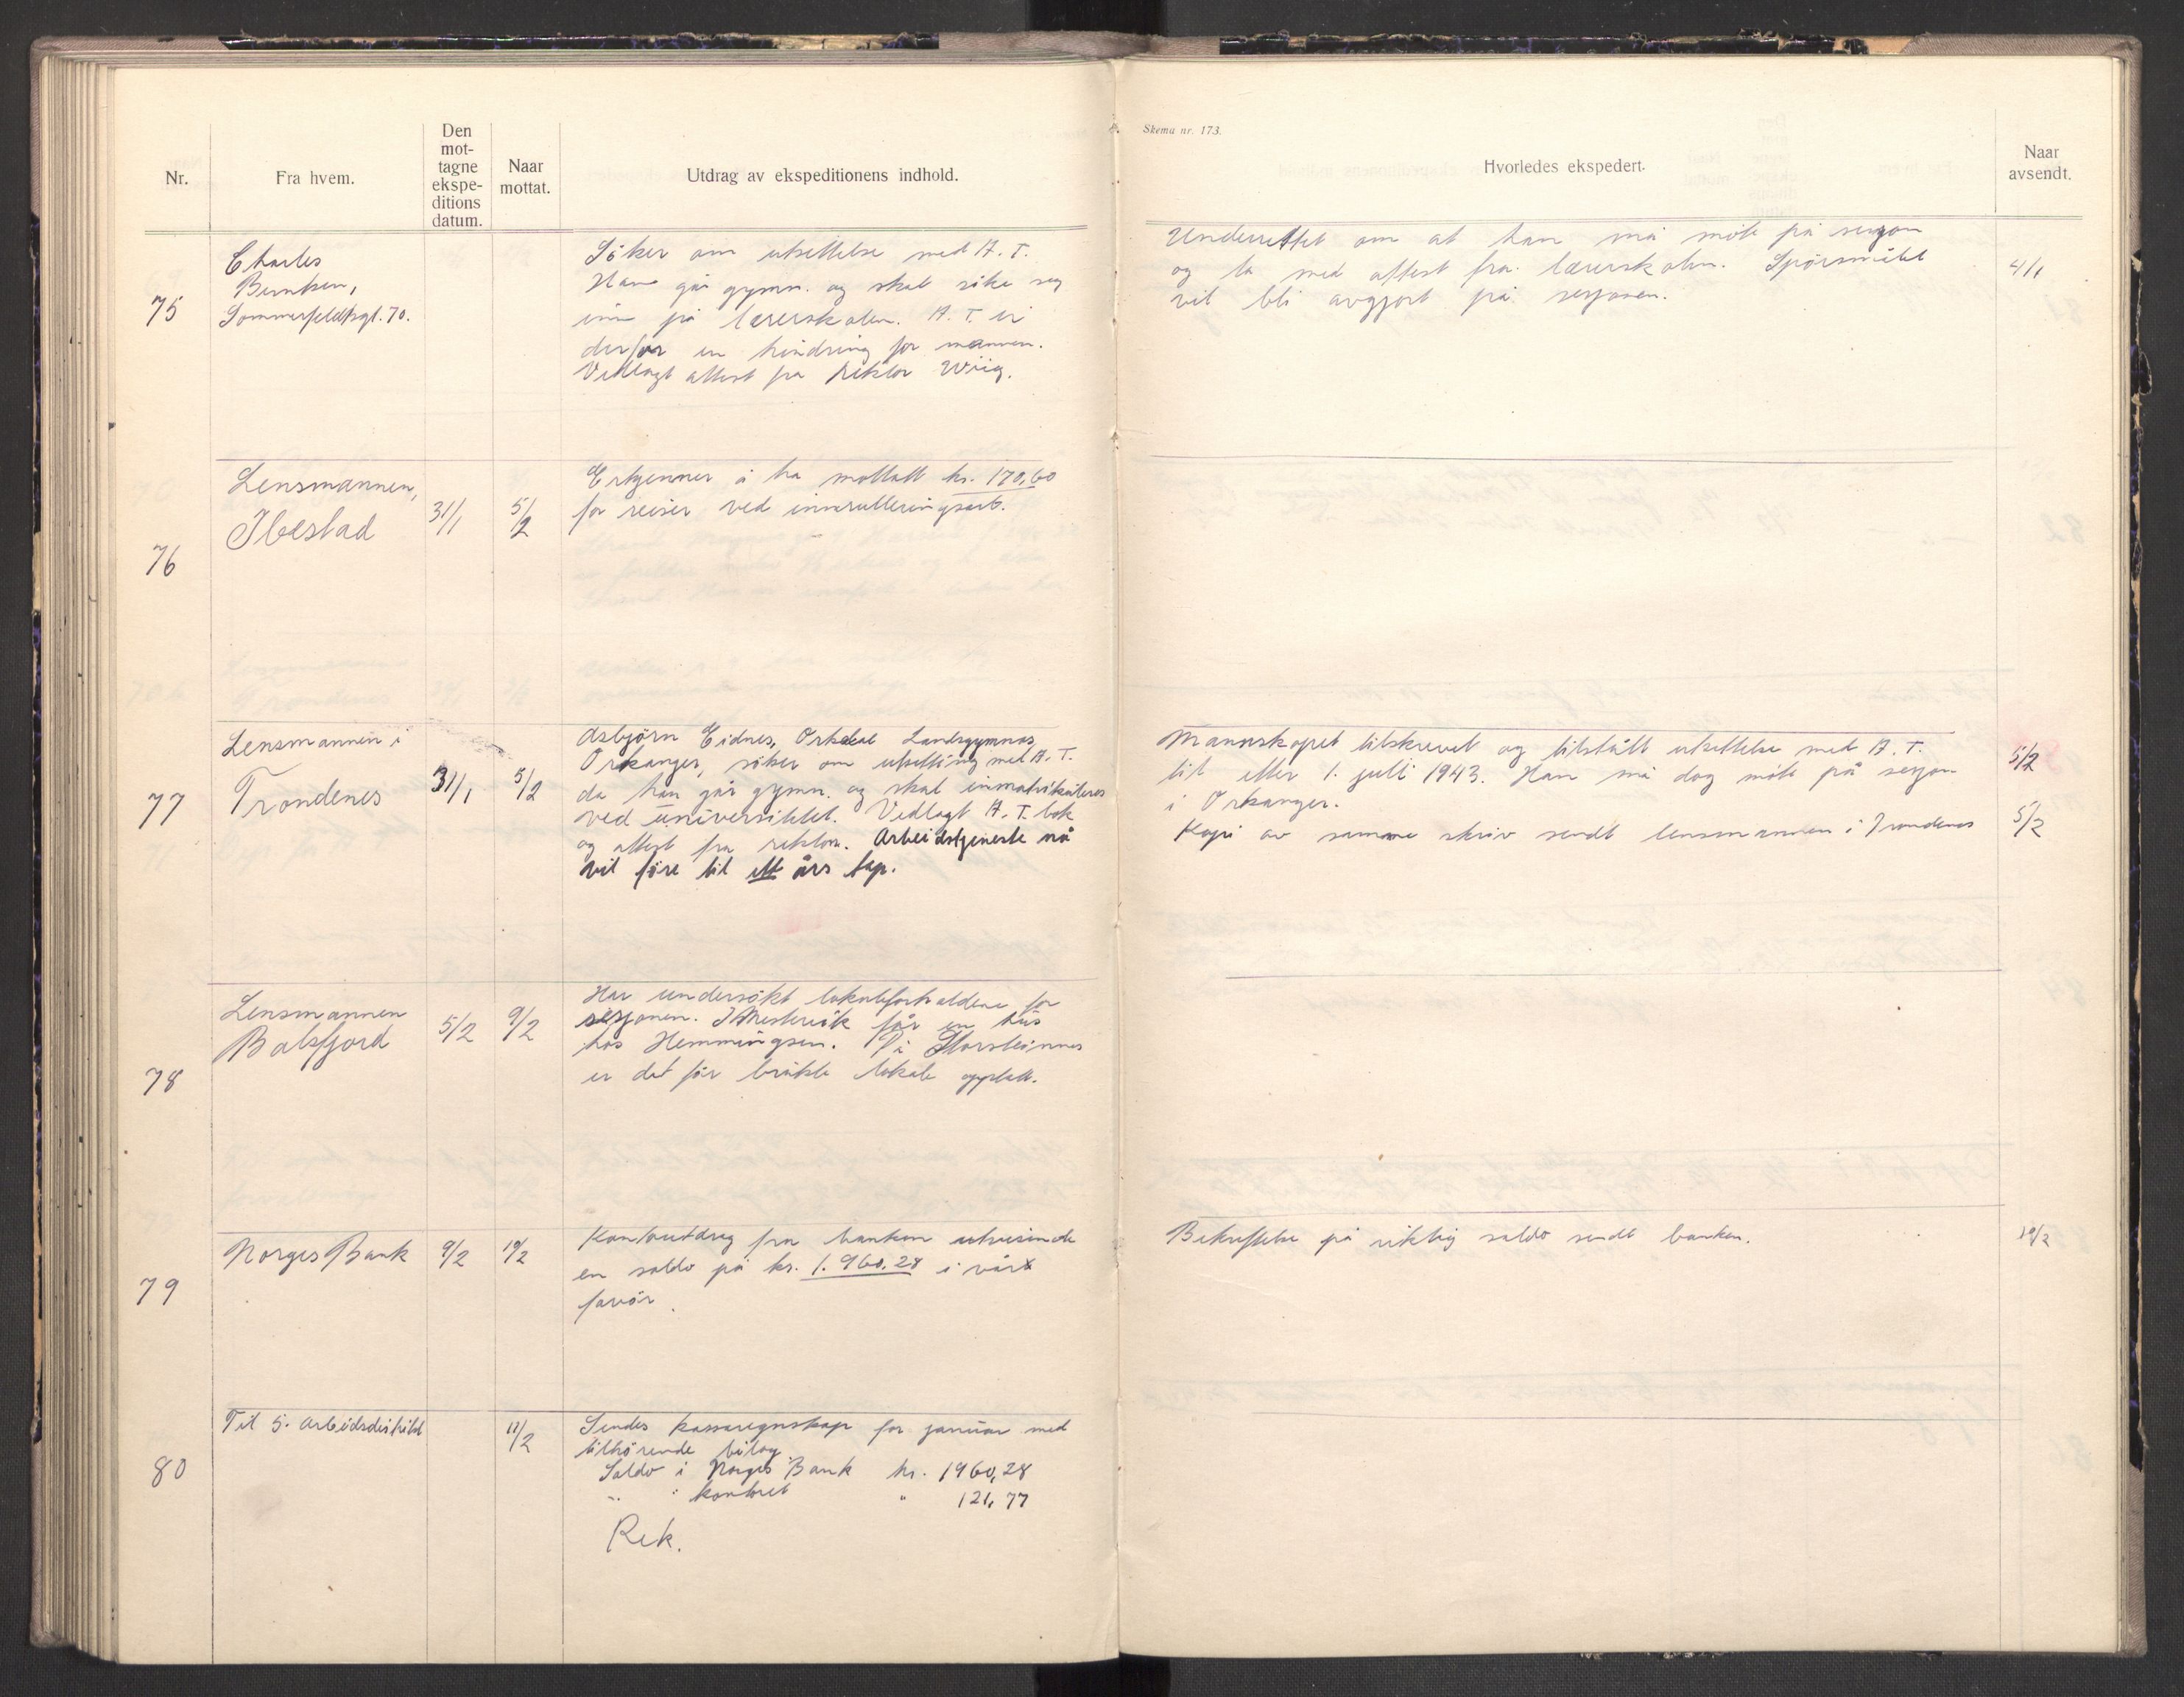 Skema nr. 173.
Nr.
Fra hvem.
Den
mot-
tagne
ekspe-
ditions
datum.
Naar
mottat.
Utdrag av ekspeditionens indhold.
Hvorledes ekspedert.
Naar
avsendt.
75
Charles
Berntsen,
Sommerfeldtsgt. 70.
Söker om utsettelse med A. T.
Han går gymn. og skal söke seg
inn på lærerskolen. A. T. er
derfor en hindring for mannen.
Vedlagt attest fra rektor Wiig.
Underrettet om at han må möte på sesjon
og ta med attest fra lærerskolen. Spörsmålet
vil bli avgjort på sesjonen.
4/1
76
Lensmannen,
Ibestad
31/1
5/2
Erkjenner å ha mottatt kr. 170,60
for reiser ved innrulleringsarb.
77
Lensmannen i
Trondenes
31/1
5/2
Asbjörn Eidnes, Orkdal Landsgymnas
Orkanger, söker om utsetting med A. T.
da han går gymn. og skal inmatrikuleres
ved universitetet. Vedlagt A. T. bok
og attest fra rektor. Arbeidstjeneste nå
vil före til ett års tap.
Mannskapet tilskrevet og tilstått utsettelse med A. T.
til etter 1. juli 1943. Han må dog möte på sesjon
i Orkanger.
Kopi av samme skriv sendt lensmannen i Trondenes
5/2
5/2
78
Lensmannen
Balsfjord
5/2
9/2
Har undersökt lokaleforholdene for
sesjonen. I Mestervik får en hus
hos Hemmingsen. På Storsteinnes
er det för brukte lokale opptatt.
79
Norges Bank
9/2
10/2
Kontoutdrag fra banken utvisende
en saldo på kr. 1.960,28 i vår
favör.
Bekreftelse på riktig saldo sendt banken.
10/2
80
Til 5. Arbeidsdistrikt
11/2
Sendes kassaregnskap for januar med
tilhörende bilag.
Saldo i Norges Bank kr. 1960,28
" " kontoret " 121,77
Rek.